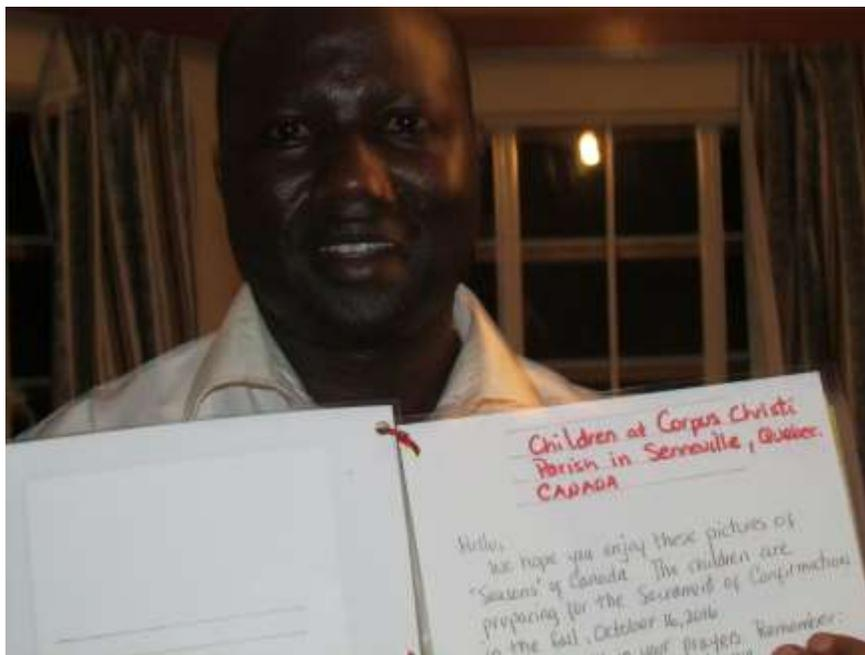 Children at Corpus Christi
Parish in Senneville, Quebec.
CANADA
Hello,
We hope you enjoy these pictures of
"Seasons" of Canada. The children are
preparing for the Sacrament of Confirmation
in the fall, October 16, 2016
in your prayers. Remember